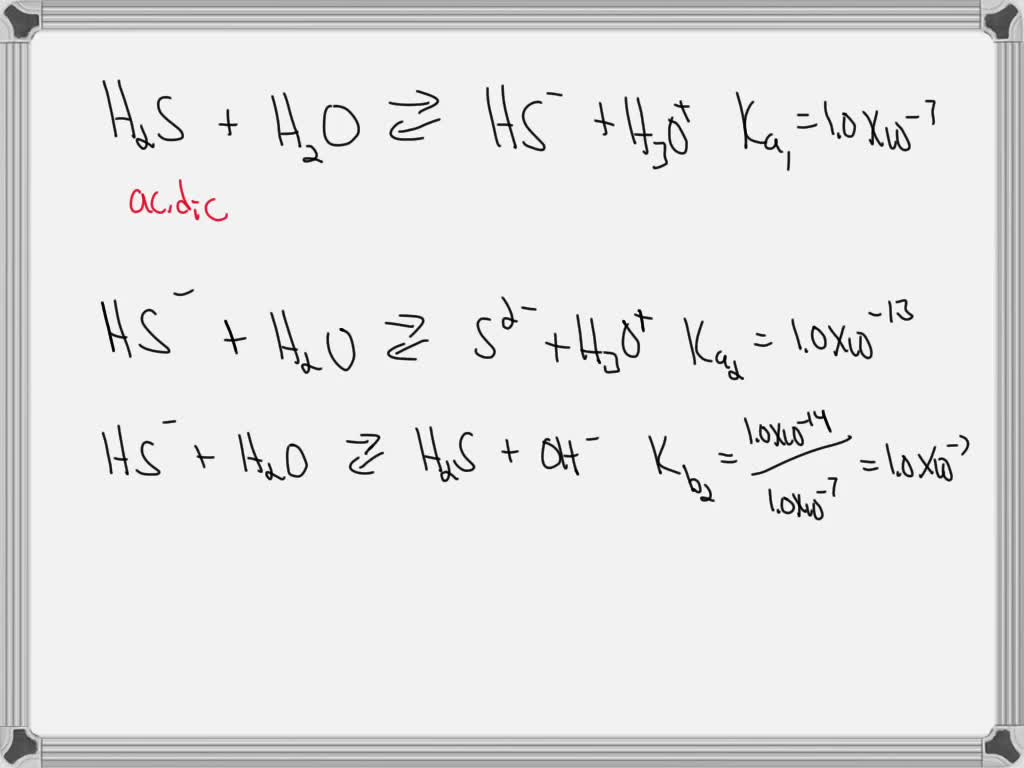 H₂S + H₂O ⇌ HS⁻ + H₃O⁺ Ka₁ = 1.0×10⁻⁷
acidic
HS⁻ + H₂O ⇌ S²⁻ + H₃O⁺ Ka₂ = 1.0×10⁻¹³
HS⁻ + H₂O ⇌ H₂S + OH⁻ Kb₂ = 1.0×10⁻¹⁴ / 1.0×10⁻⁷ = 1.0×10⁻⁷